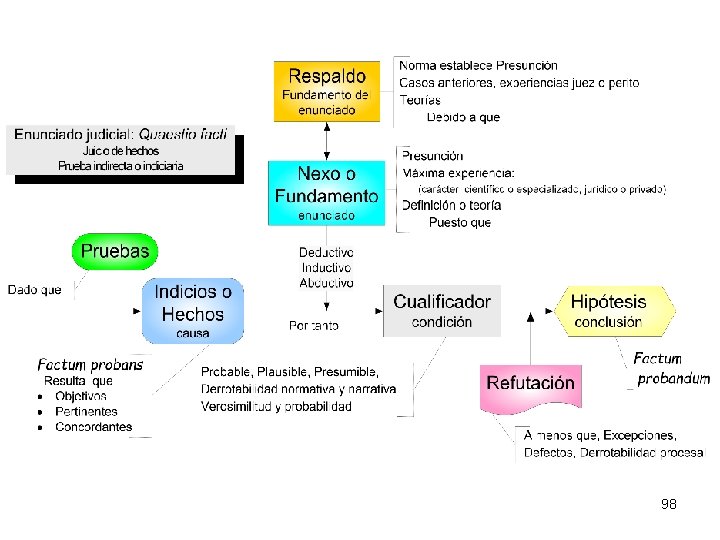 Respaldo
Fundamento de
enunciado
Norma establece Presunción
Casos anteriores, experiencias juez o perito
Teorías
Debido a que
Enunciado judicial: Quaestio facti
Juicio de hechos
Prueba indirecta o indiciaria
Nexo o
Fundamento
enunciado
Presunción
Máxima experiencia:
(carácter científico o especializado, jurídico o privado)
Definición o teoría
Puesto que
Pruebas
Deductivo
Inductivo
Abductivo
Dado que
Indicios o
Hechos
causa
Por tanto
Cualificador
condición
Hipótesis
conclusión
Factum probans
Resulta que
• Objetivos
• Pertinentes
• Concordantes
Probable, Plausible, Presumible,
Derrotabilidad normativa y narrativa
Verosimilitud y probabilidad
Refutación
Factum
probandum
A menos que, Excepciones,
Defectos, Derrotabilidad procesal
98